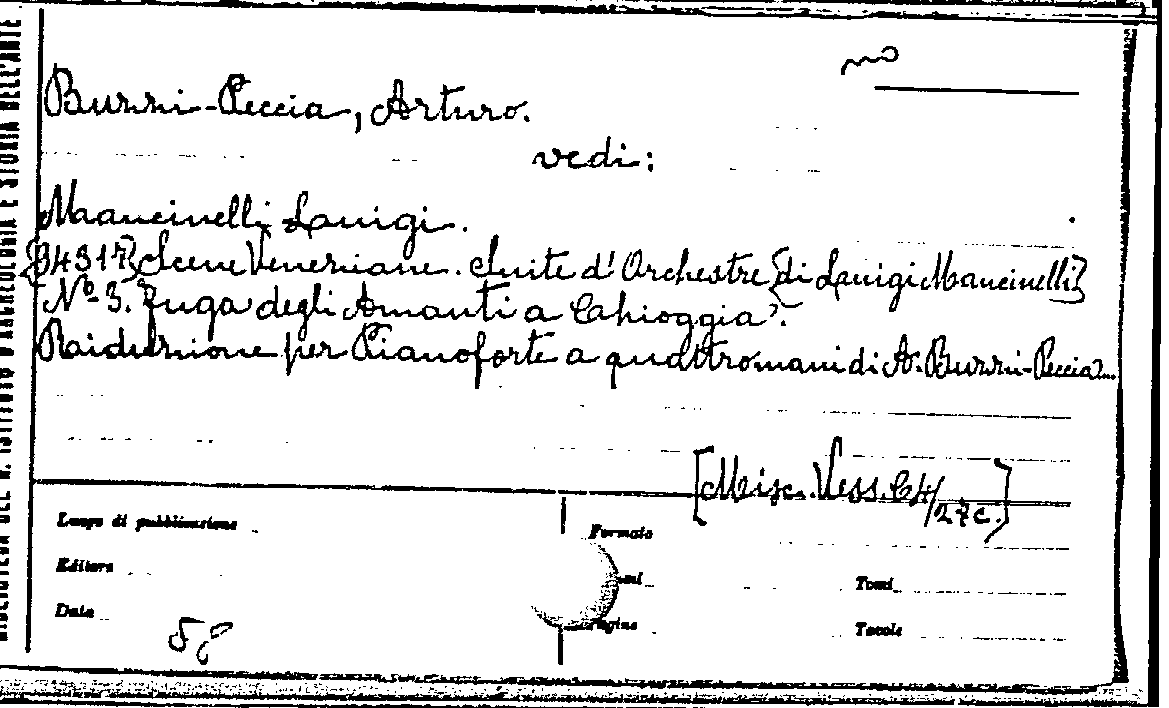 mo
Buzzi-Peccia, Arturo.
vedi:
Mancinelli Luigi.
{84317} Scene Veneziane. Suite d'Orchestre {di Luigi Mancinelli}
Nº 3. Fuga degli Amanti a Chioggia.
Raiduzione per Pianoforte a quattromani di A. Buzzi-Peccia...
[Misc. Vess. C4/27c.]
Luogo di pubblicazione
Formato
Editore
Tomi
Data
agine
Tavole
BIBLIOTECA DEL R. ISTITUTO D'ARCHEOLOGIA E STORIA DELL'ARTE